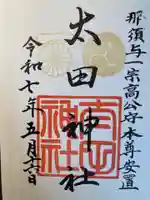 那須与一宗高公守本尊安置
太田神社
令和七年五月六日
太田
神社